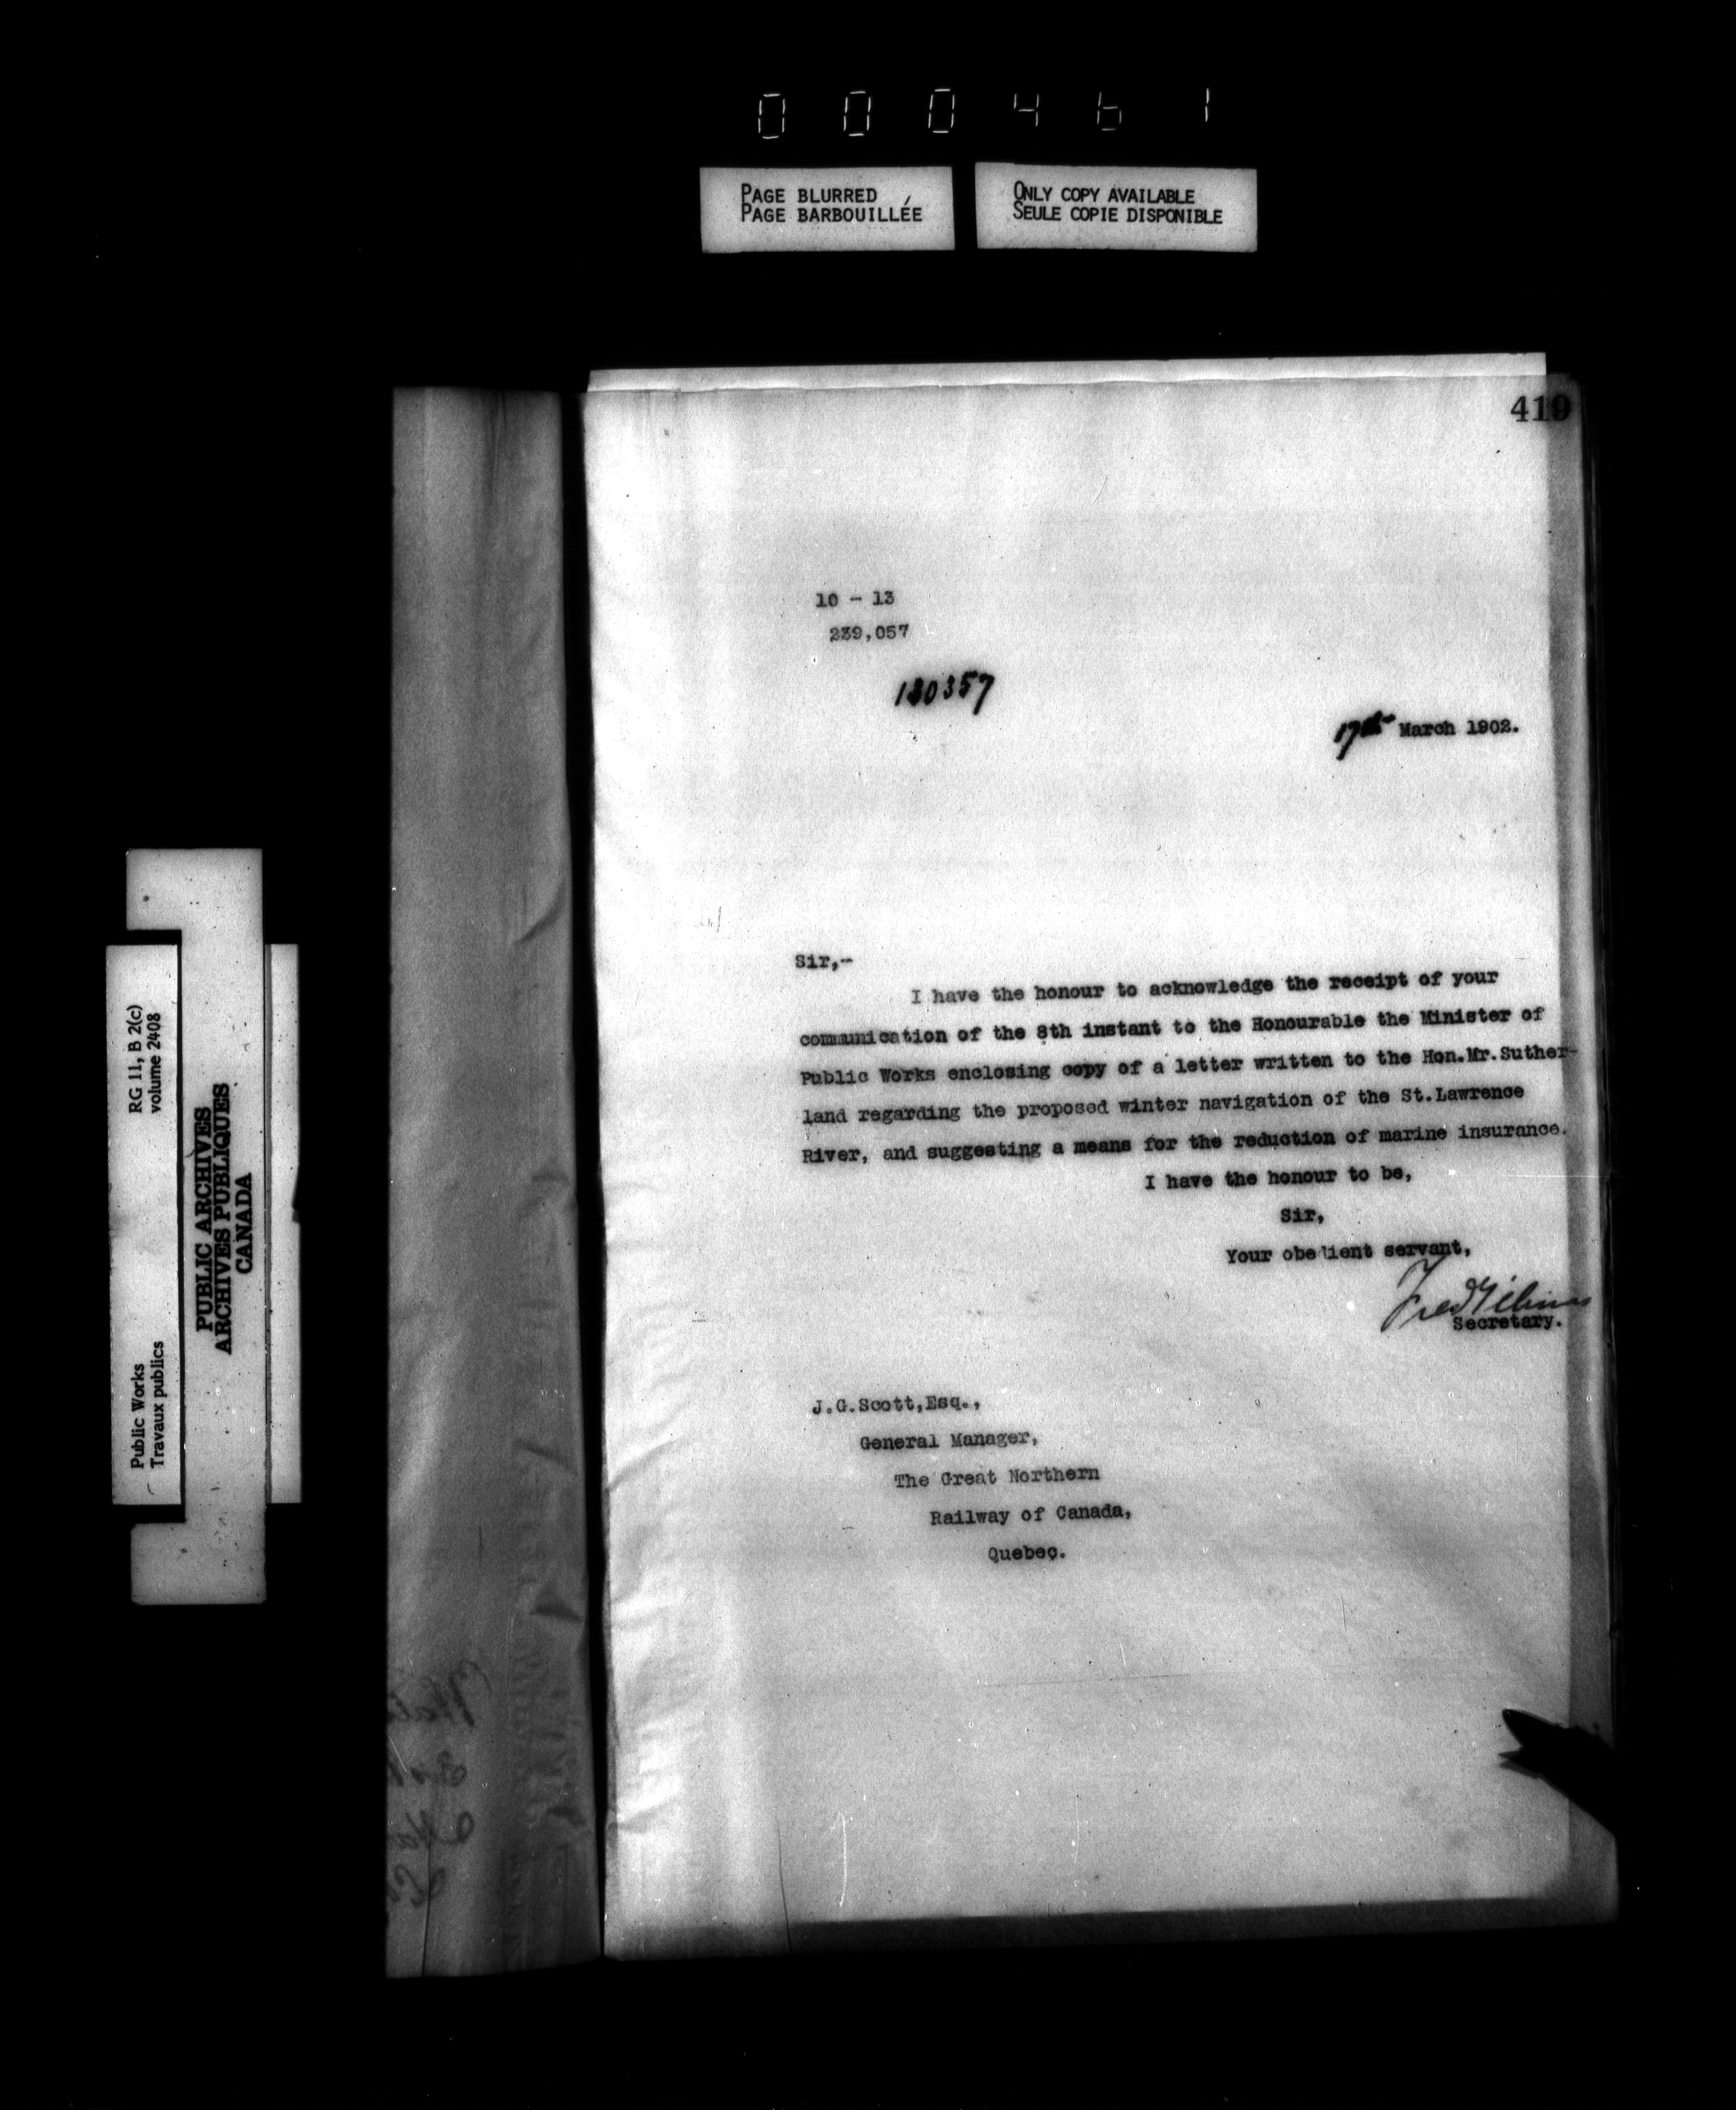 000461
PAGE BLURRED
PAGE BARBOUILLÉE
ONLY COPY AVAILABLE
SEULE COPIE DISPONIBLE
419
10 - 13
239,057
130357
17th March 1902.
Sir,-
I have the honour to acknowledge the receipt of your
communication of the 8th instant to the Honourable the Minister of
Public Works enclosing copy of a letter written to the Hon.Mr.Suther-
land regarding the proposed winter navigation of the St.Lawrence
River, and suggesting a means for the reduction of marine insurance.
I have the honour to be,
Sir,
Your obedient servant,
Fred Gélinas
Secretary.
J.G.Scott,Esq.,
General Manager,
The Great Northern
Railway of Canada,
Quebec.
RG 11, B 2(c)
volume 2408
Public Works
Travaux publics
PUBLIC ARCHIVES
ARCHIVES PUBLIQUES
CANADA